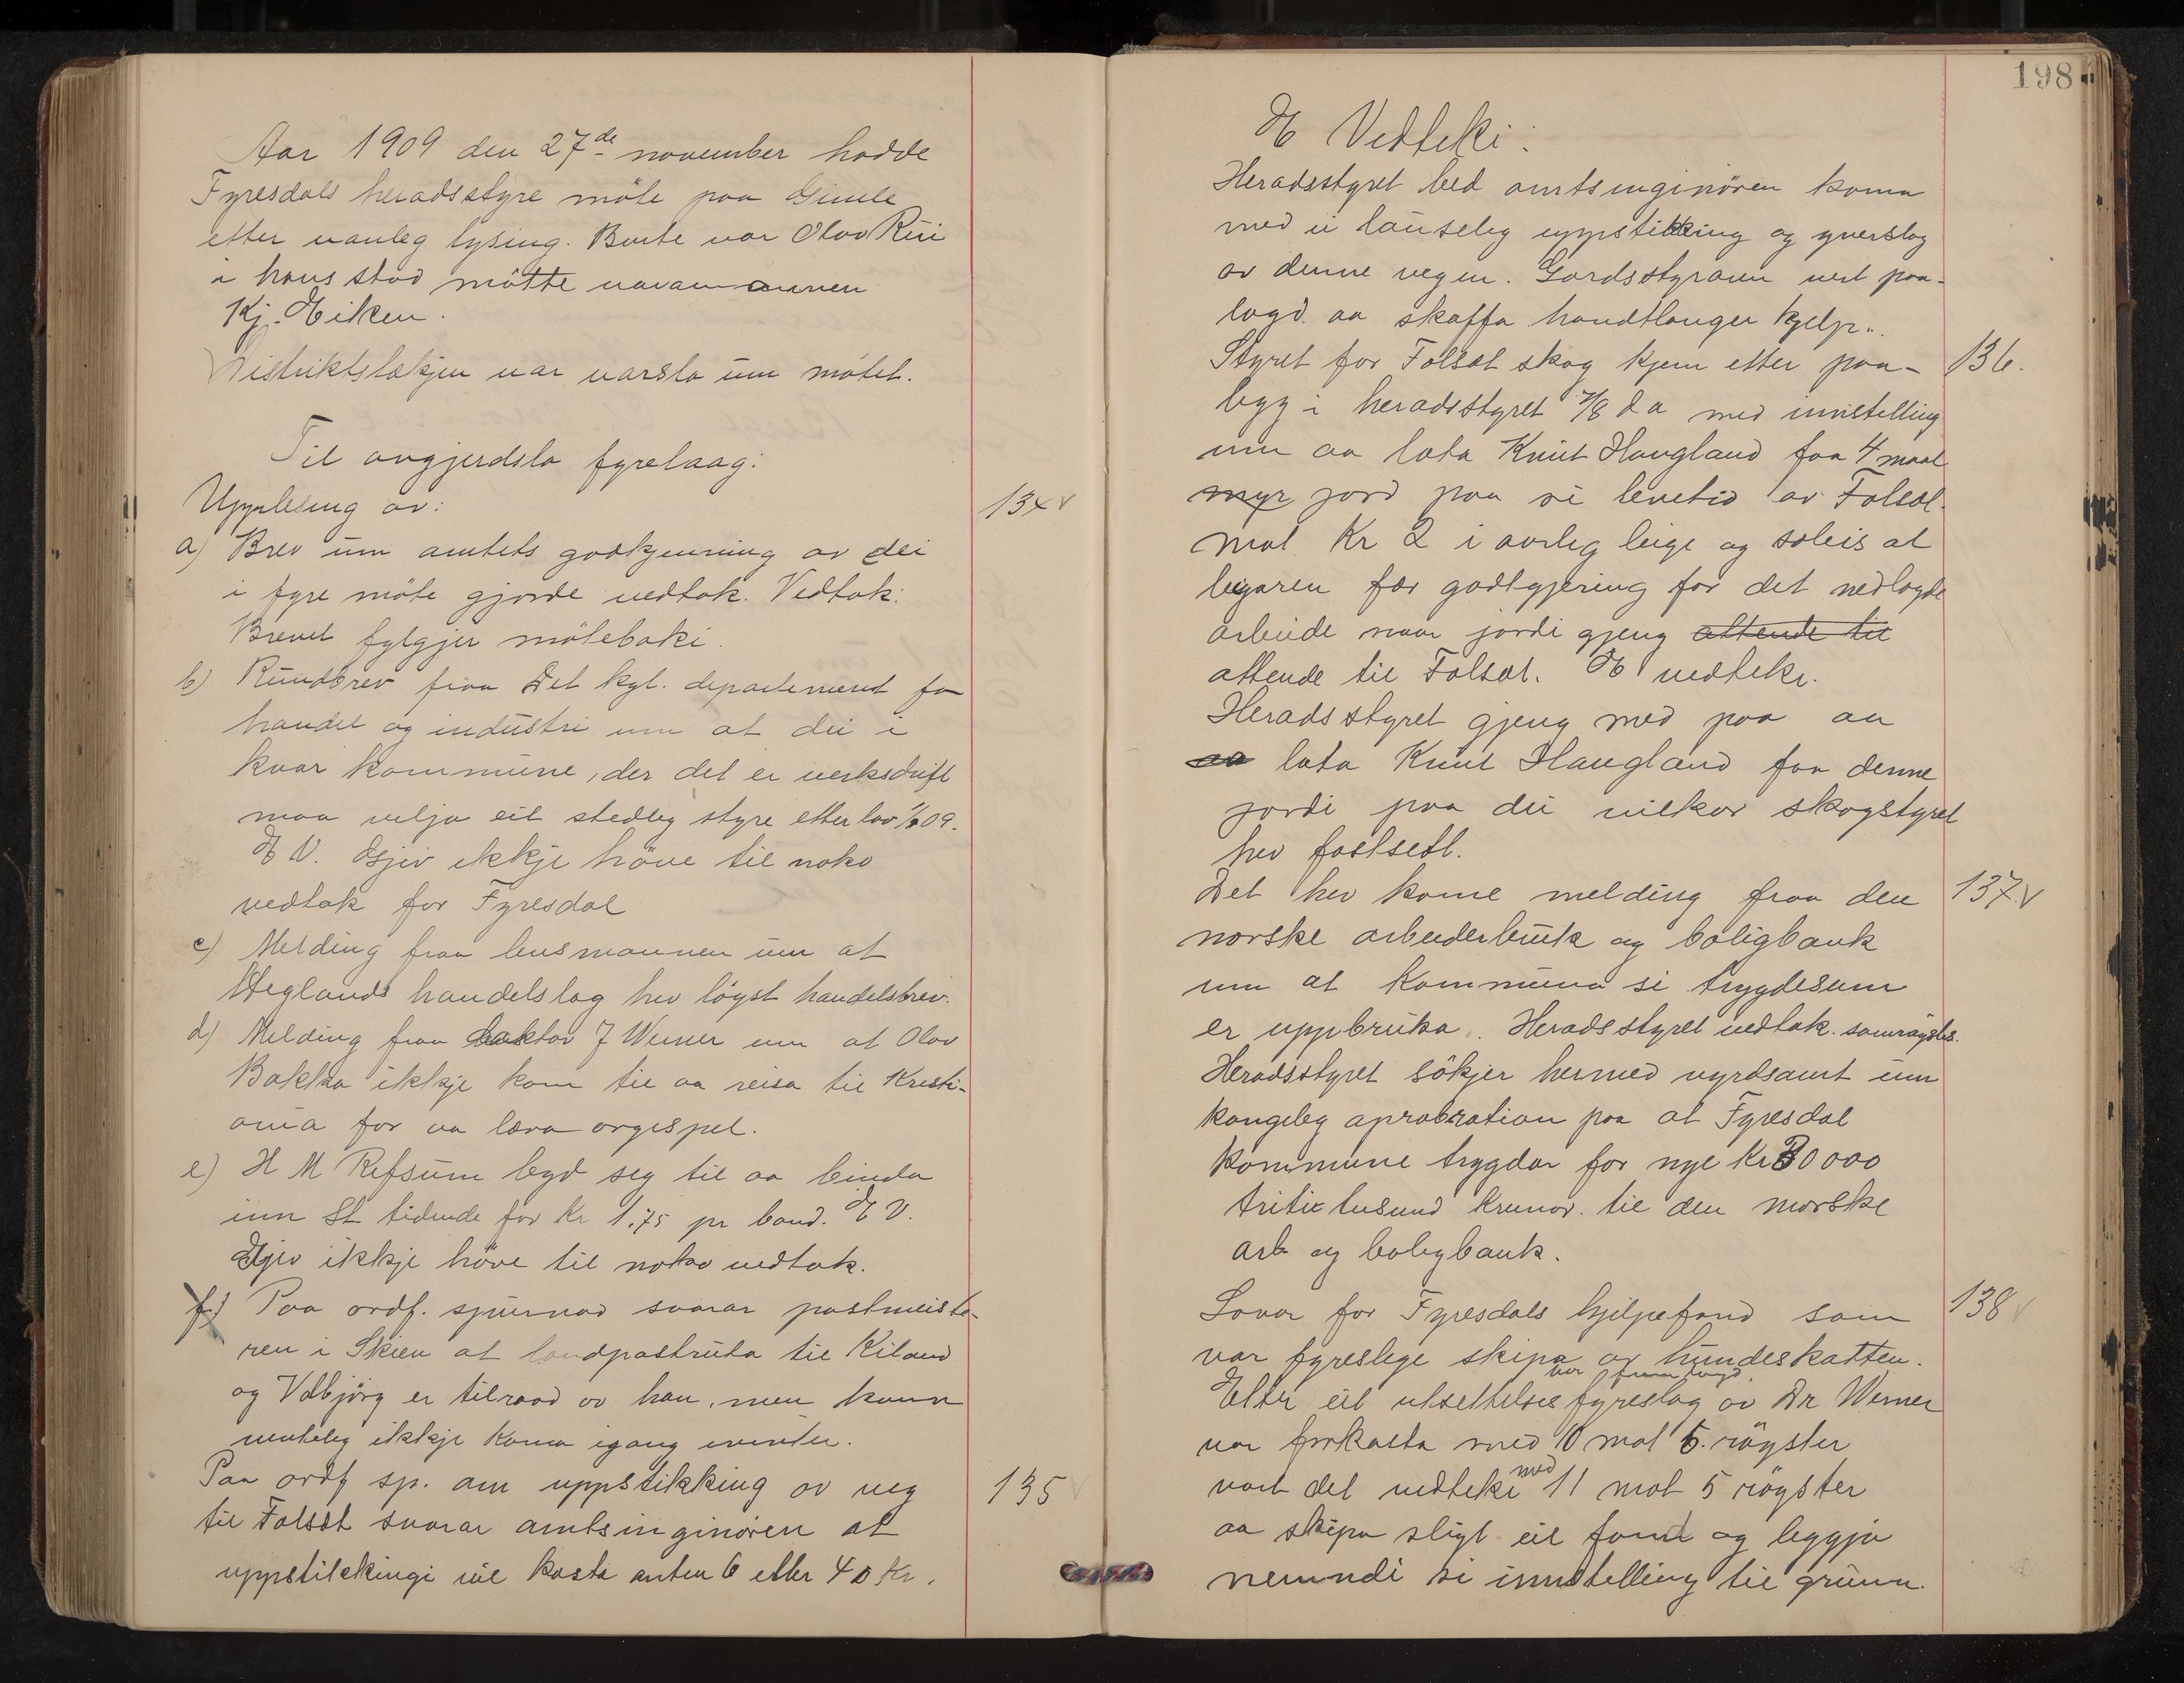 Aar 1909 den 27de november hadde
Fyresdals heradsstyre möte paa Gimle
etter vanleg lysing. Burte var Olav Rui
i hans stad mötte varamannen
Kj. Eiken.
Distriktslækjen var varsla um mötet.
Til avgjerdsla fyrelaag:
Upplesing av: 134 v
a) Brev um amtets godkjenning av dei
i fyre möte gjorde vedtak. Vedtak:
Brevet fylgjer möteboki.
b) Rundbrev fraa Det kgl. departement for
handel og industri um at dei i
kvar kommune, der det er verksdrift
maa velja eit stedleg styre etter lov 09.
E V. Gjev ikkje höve til noko
vedtak for Fyresdal
c) Melding fraa lensmannen um at
Veglands handelslag hev löyst handelsbrev.
d) Melding fraa doktor J Werner um at Olav
Bakka ikkje kom til aa reisa til Kristi-
ania for aa læra orgespel.
e) H M Refsum byd seg til aa binda
inn St. tidende for Kr 1.75 pr band. E V.
Gjev ikkje höve til noko vedtak.
f) Paa ordf. spurnad svarar postmeista-
ren i Skien at landpostruta til Kiland
og Valbjörg er tilraad av han, men kann
venteleg ikkje koma igang ivinter.
Paa ordf sp. om uppstikking av veg 135 v
til Folsæt svarar amtsinginören at
uppstikkingi vil kosta anten 6 eller 40 Kr.
198
E Vedteki:
Heradsstyret bed amtsinginören koma
med ei lauseleg uppstikking og yverslag
av denne vegen. Gardsstyraren vert paa-
lagd aa skaffa handtlanger hjelp.
Styret for Folsæt skog kjem etter paa- 136.
legg i heradsstyret 7/8 d a med innstelling
um aa lata Knut Haugland faa 4 maal
myr jord paa si levetid av Folsæt.
mot Kr 2 i aarleg leige og soleis at
leigaren fær godtgjering for det nedlagde
arbeide naar jordi gjeng attende til
attende til Folsæt. E vedteke.
Heradsstyret gjeng med paa aa
aa lata Knut Haugland faa denne
jordi paa dei vilkor skogstyret
hev fastsett.
Det hev kome melding fraa den 137. v
norske arbeiderbruk og boligbank
um at kommuna si trygdesum
er uppbruka. Heradsstyret vedtak. samröystes.
Heradsstyret sökjer hermed vyrdsamt um
kongeleg aprobration paa at Fyresdal
kommune trygdar for nye Kr 30 000
triti tusund krunor. til den norske
arb og boligbank.
Lovor for Fyresdals hjelpefond som 138 v
var fyreslege skipa av hundeskatten.
var framlagd
Etter eit utsettelses fyreslag av Dr Werner
var forkasta med 10 mot 6. röyster
vart det vedteke med 11 mot 5 röyster
aa skipa sligt eit fond og leggja
nemndi si innstelling til grunn.